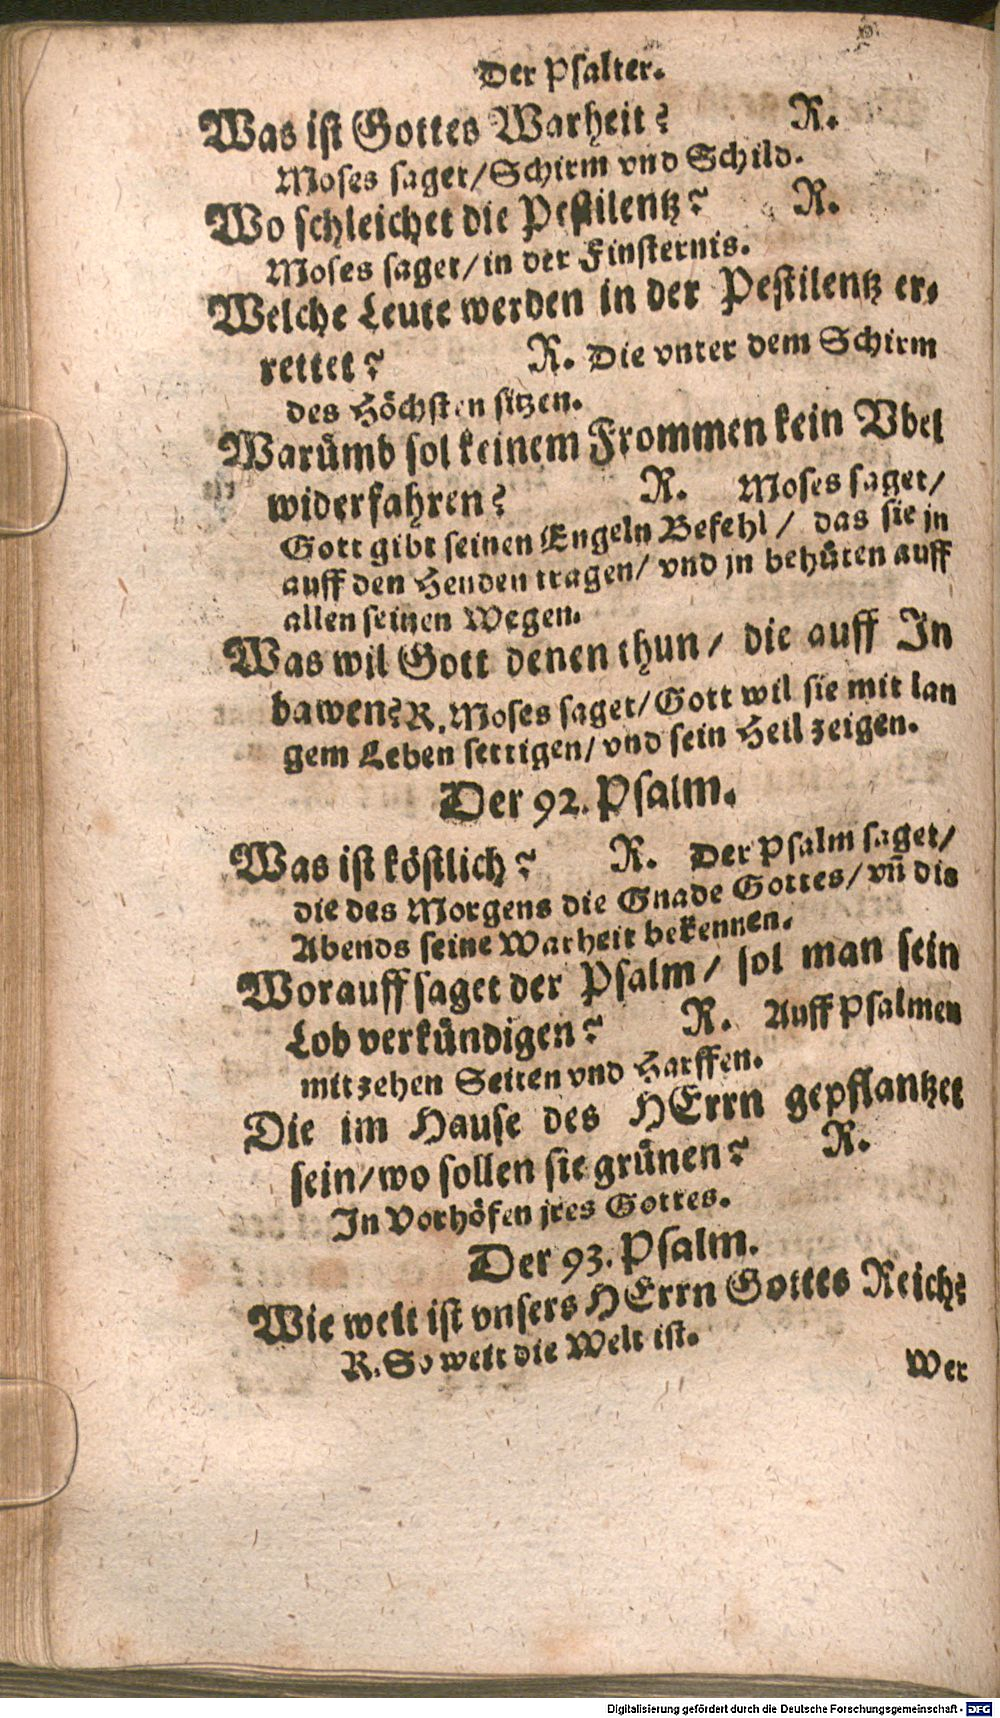 Der Psalter.
Was ist Gottes Warheit? R.
Moses saget/Schirm vnd Schild.
Wo schleichet die Pestilentz? R.
Moses saget/in der Finsternis.
Welche Leute werden in der Pestilentz er-
rettet? R. Die vnter dem Schirm
des Höchsten sitzen.
Warümb sol keinem Frommen kein Vbel
widerfahren? R. Moses saget/
Gott gibt seinen Engeln Befehl/ das sie jn
auff den Henden tragen/ vnd jn behüten auff
allen seinen Wegen.
Was wil Gott denen thun/ die auff In
bawen? R. Moses saget/Gott wil sie mit lan
gem Leben settigen/ vnd sein Heil zeigen.
Der 92. Psalm.
Was ist köstlich? R. Der Psalm saget/
die des Morgens die Gnade Gottes/ vn̄ dis
Abends seine Warheit bekennen.
Worauff saget der Psalm/ sol man sein
Lob verkündigen? R. Auff Psalmen
mit zehen Seiten vnd Harffen.
Die im Hause des HErrn gepflantzet
sein/wo sollen sie grünen? R.
In Vorhöfen jres Gottes.
Der 93. Psalm.
Wie weit ist vnsers HErrn Gottes Reich?
R. So weit die Welt ist.
Wer
Digitalisierung gefördert durch die Deutsche Forschungsgemeinschaft - DFG